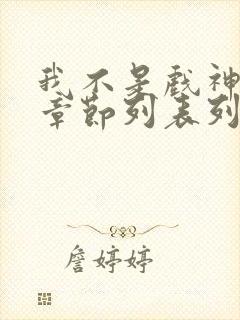 我不是戏神
章节列表列
詹婷婷